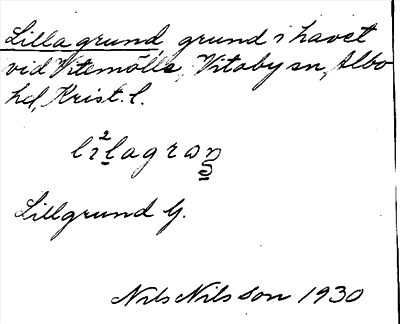 Lilla grund, grund i havet
vid Vitemölle, Vitaby sn, Albo
hd, Krist. l.
Lillgrund G.
Nils Nilsson 1930